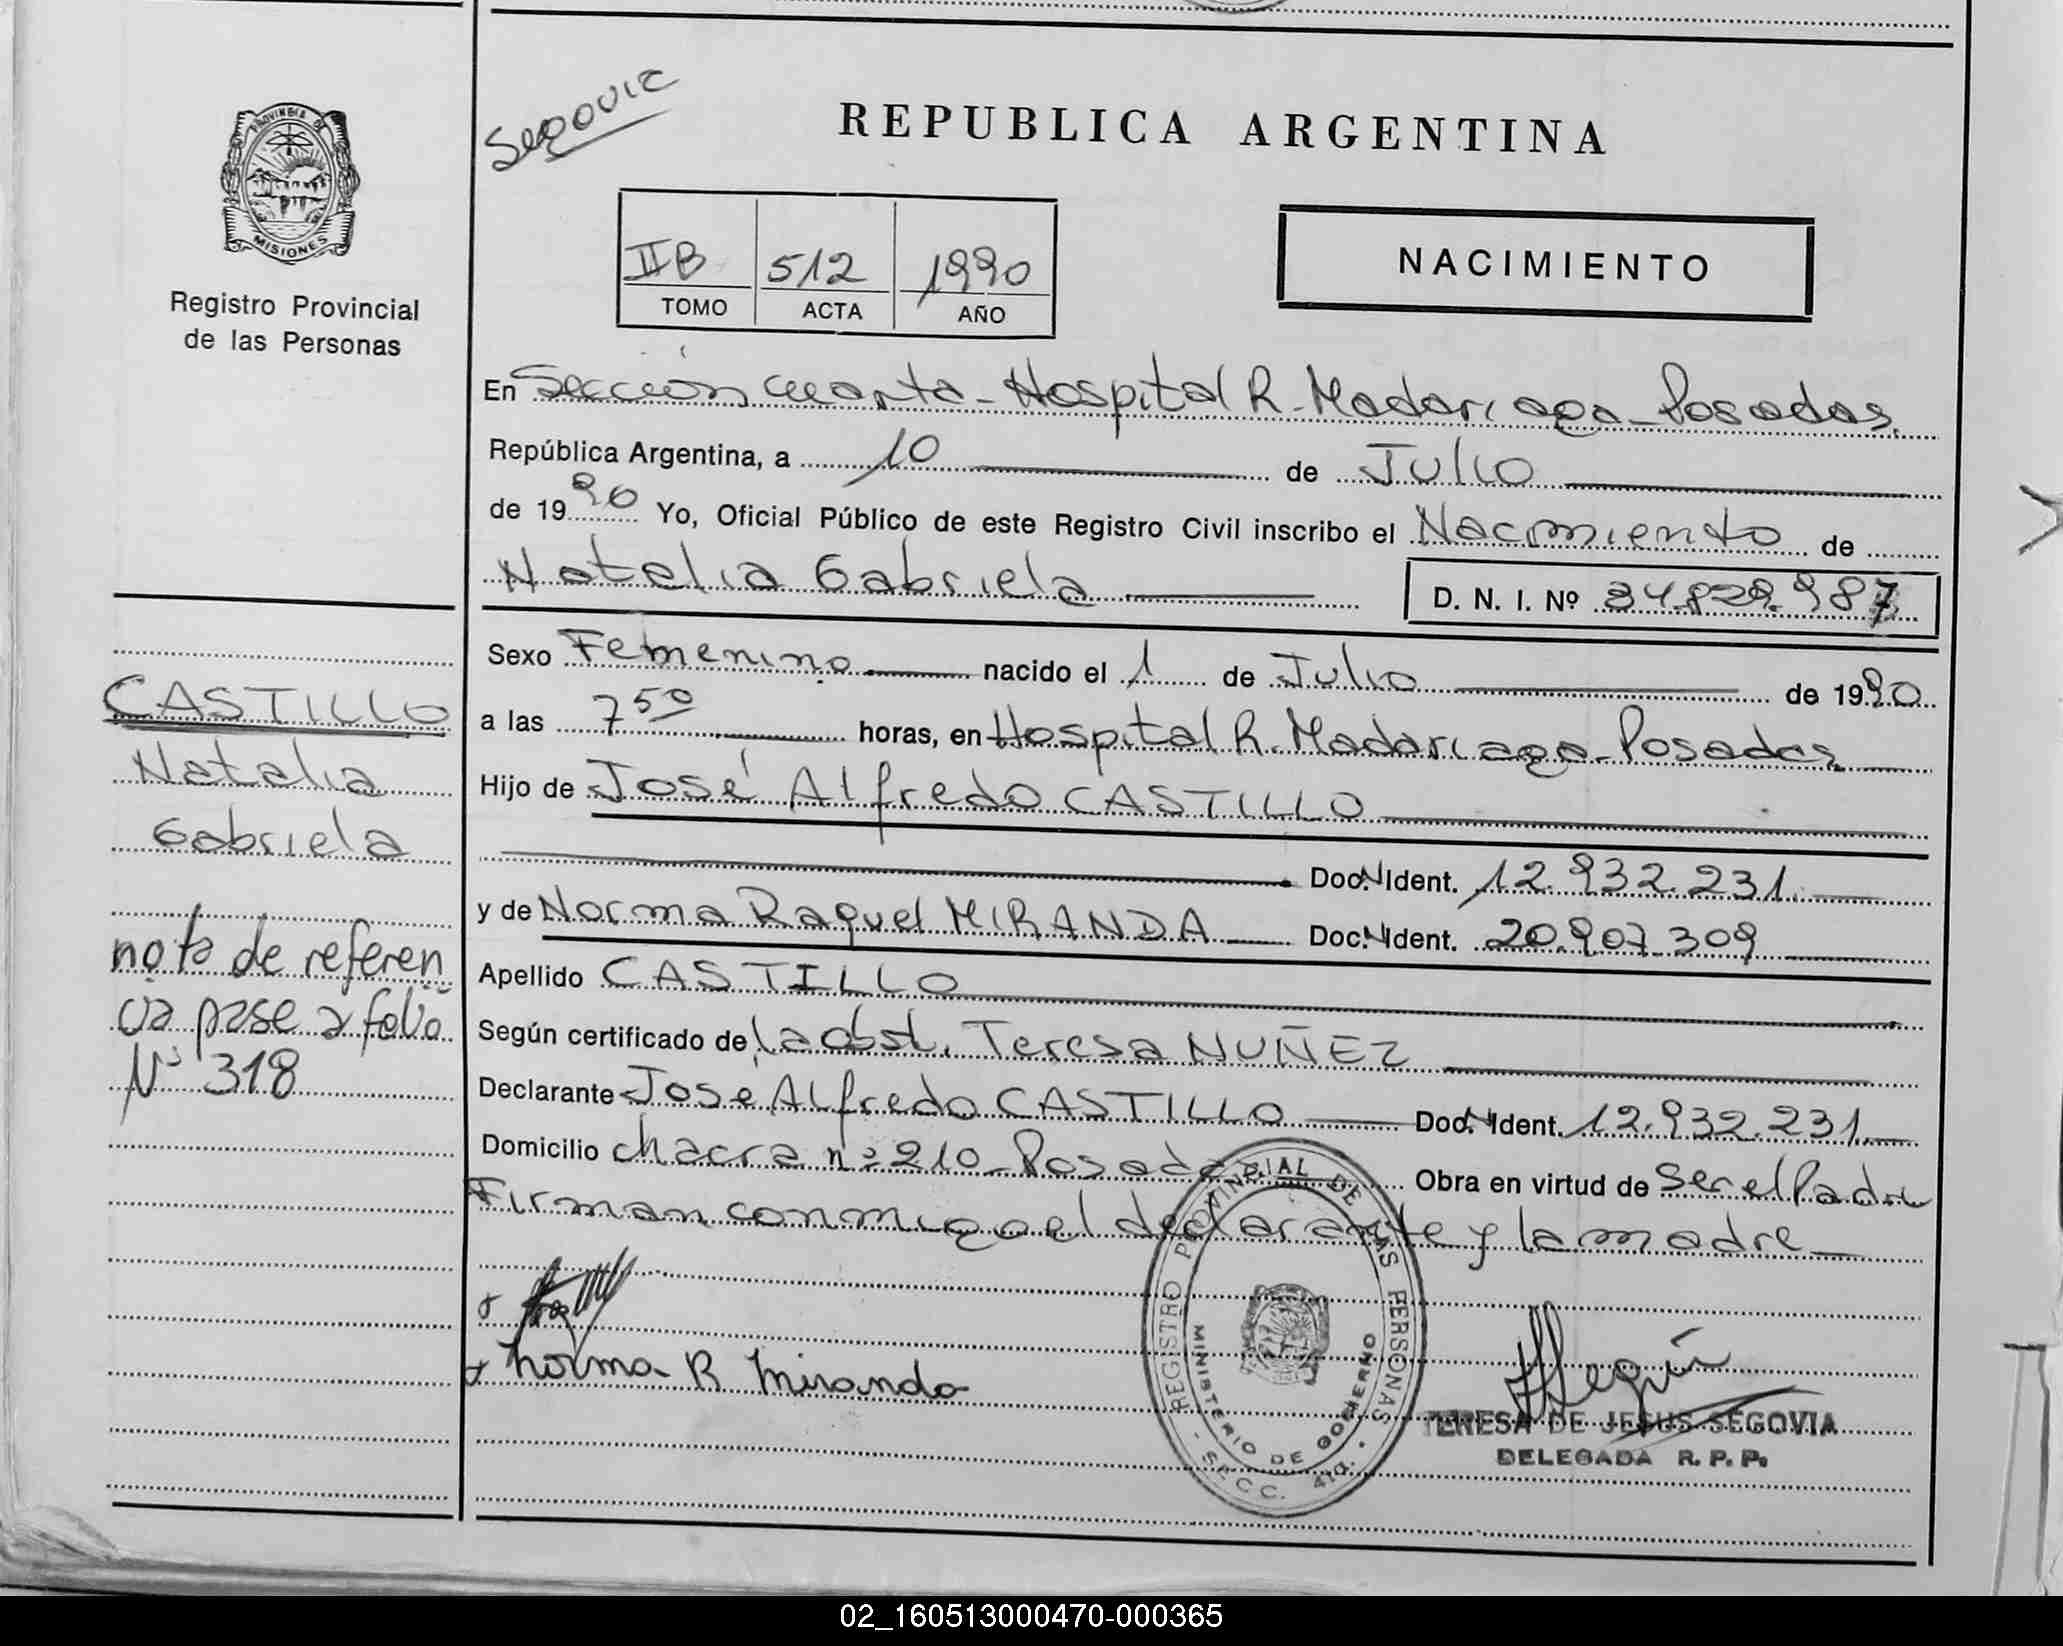 Segovia
REPUBLICA ARGENTINA
PROVINCIA DE
MISIONES
Registro Provincial
de las Personas
IIB 512 1990
TOMO ACTA AÑO
NACIMIENTO
En Sección cuarta - Hospital R. Madariaga - Posadas.
República Argentina, a 10 de Julio
de 1990 Yo, Oficial Público de este Registro Civil inscribo el Nacimiento de
Natalia Gabriela D. N. I. Nº 34.829.987
Sexo Femenino nacido el 1 de Julio de 1990
a las 7 50 horas, en Hospital R. Madariaga - Posadas
Hijo de José Alfredo CASTILLO
Doc. N Ident. 12.932.231.
y de Norma Raquel MIRANDA Doc. N Ident. 20.907.309
Apellido CASTILLO
Según certificado de la obst. Teresa NUÑEZ
Declarante José Alfredo CASTILLO Doc. N Ident. 12.932.231.
Domicilio chacra nº 210 - Posadas Obra en virtud de Ser el Padre
Firman conmigo el declarante y la madre
Norma R Miranda
CASTILLO
Natalia
Gabriela
nota de referen
cia pase a folio
Nº 318
REGISTRO PROVINCIAL DE LAS PERSONAS
MINISTERIO DE GOBIERNO
- SECC. 4ta. -
TERESA DE JESUS SEGOVIA
DELEGADA R. P. P.
02_160513000470-000365